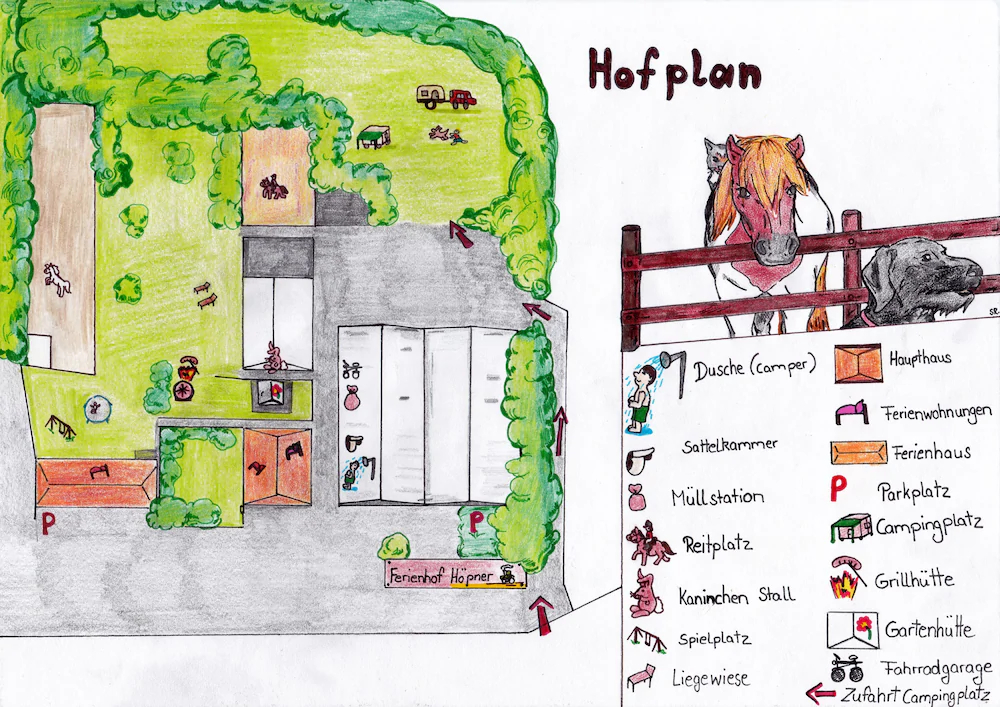 Hofplan
SR.
Dusche (Camper)
Sattelkammer
Müllstation
Reitplatz
Kaninchen Stall
Spielplatz
Liegewiese
Haupthaus
Ferienwohnungen
Ferienhaus
P Parkplatz
Campingplatz
Grillhütte
Gartenhütte
Fahrradgarage
Zufahrt Campingplatz
P
P
Ferienhof Höpner